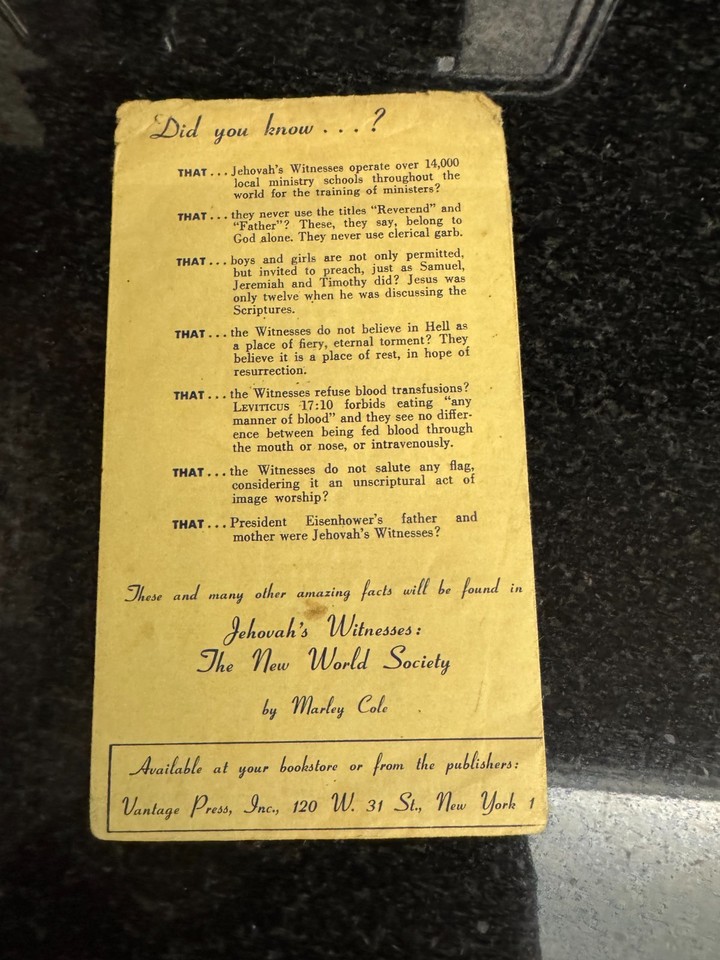 Did you know . . . ?
THAT . . . Jehovah's Witnesses operate over 14,000
local ministry schools throughout the
world for the training of ministers?
THAT . . . they never use the titles "Reverend" and
"Father"? These, they say, belong to
God alone. They never use clerical garb.
THAT . . . boys and girls are not only permitted,
but invited to preach, just as Samuel,
Jeremiah and Timothy did? Jesus was
only twelve when he was discussing the
Scriptures.
THAT . . . the Witnesses do not believe in Hell as
a place of fiery, eternal torment? They
believe it is a place of rest, in hope of
resurrection.
THAT . . . the Witnesses refuse blood transfusions?
LEVITICUS 17:10 forbids eating "any
manner of blood" and they see no differ-
ence between being fed blood through
the mouth or nose, or intravenously.
THAT . . . the Witnesses do not salute any flag,
considering it an unscriptural act of
image worship?
THAT . . . President Eisenhower's father and
mother were Jehovah's Witnesses?
These and many other amazing facts will be found in
Jehovah's Witnesses:
The New World Society
by Marley Cole
Available at your bookstore or from the publishers:
Vantage Press, Inc., 120 W. 31 St., New York 1